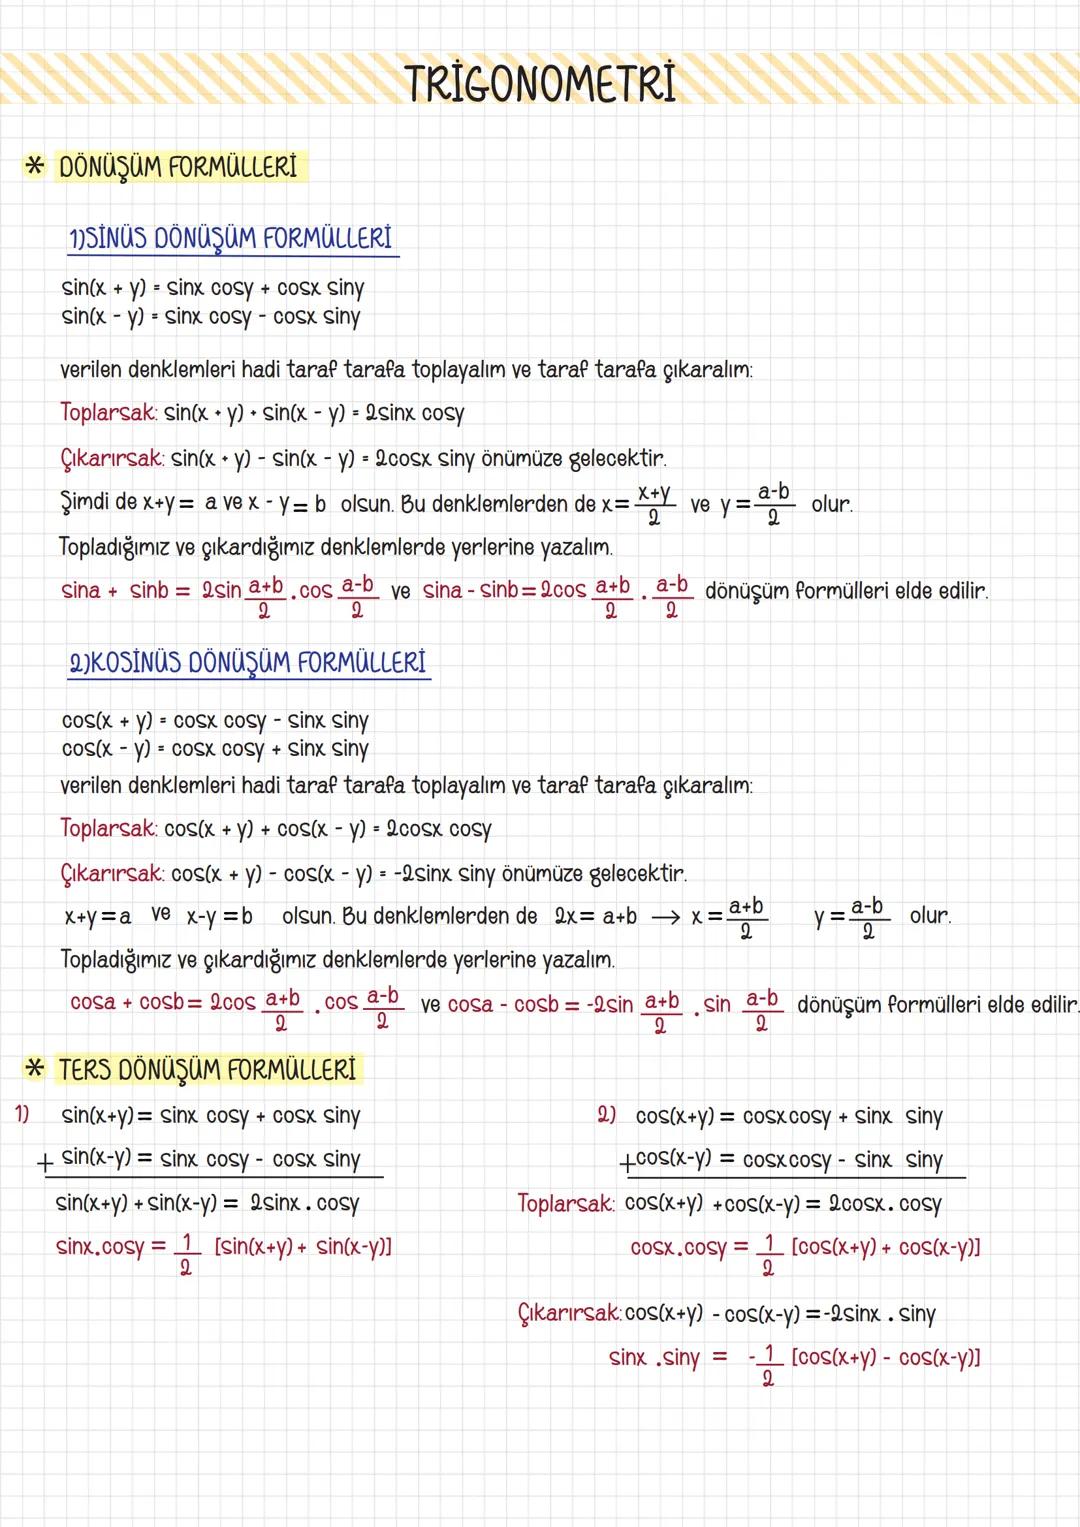 TRİGONOMETRİ
* DÖNÜŞÜM FORMÜLLERİ
1)SİNÜS DÖNÜŞÜM FORMÜLLERİ
sin(x + y) = sinx cosy + cosx siny
sin(x - y) = sinx cosy - cosx siny
verilen denklemleri hadi taraf tarafa toplayalım ve taraf tarafa çıkaralım:
Toplarsak: sin(x + y) + sin(x - y) = 2sinx cosy
Çıkarırsak: sin(x + y) - sin(x - y) = 2cosx siny önümüze gelecektir.
Şimdi de x+y= a ve x - y= b olsun. Bu denklemlerden de x= x+y/2 ve y= a-b/2 olur.
Topladığımız ve çıkardığımız denklemlerde yerlerine yazalım.
sina + sinb = 2sin a+b/2 . cos a-b/2 ve sina - sinb=2cos a+b/2 . a-b/2 dönüşüm formülleri elde edilir.
2)KOSİNÜS DÖNÜŞÜM FORMÜLLERİ
cos(x + y) = cosx cosy - sinx siny
cos(x - y) = cosx cosy + sinx siny
verilen denklemleri hadi taraf tarafa toplayalım ve taraf tarafa çıkaralım:
Toplarsak: cos(x + y) + cos(x - y) = 2cosx cosy
Çıkarırsak: cos(x + y) - cos(x - y) = -2sinx siny önümüze gelecektir.
x+y=a ve x-y=b olsun. Bu denklemlerden de 2x= a+b → x= a+b/2 y= a-b/2 olur.
Topladığımız ve çıkardığımız denklemlerde yerlerine yazalım.
cosa + cosb= 2cos a+b/2 . cos a-b/2 ve cosa - cosb = -2sin a+b/2 . sin a-b/2 dönüşüm formülleri elde edilir.
* TERS DÖNÜŞÜM FORMÜLLERİ
1) sin(x+y)= sinx cosy + cosx siny
+ sin(x-y) = sinx cosy - cosx siny
sin(x+y) + sin(x-y) = 2sinx . cosy
sinx.cosy = 1/2 [sin(x+y) + sin(x-y)]
2) cos(x+y) = cosx cosy + sinx siny
+cos(x-y) = cosx cosy - sinx siny
Toplarsak: cos(x+y) +cos(x-y) = 2cosx. cosy
cosx.cosy = 1/2 [cos(x+y) + cos(x-y)]
Çıkarırsak:cos(x+y) - cos(x-y) =-2sinx . siny
sinx .siny = -1/2 [cos(x+y) - cos(x-y)]